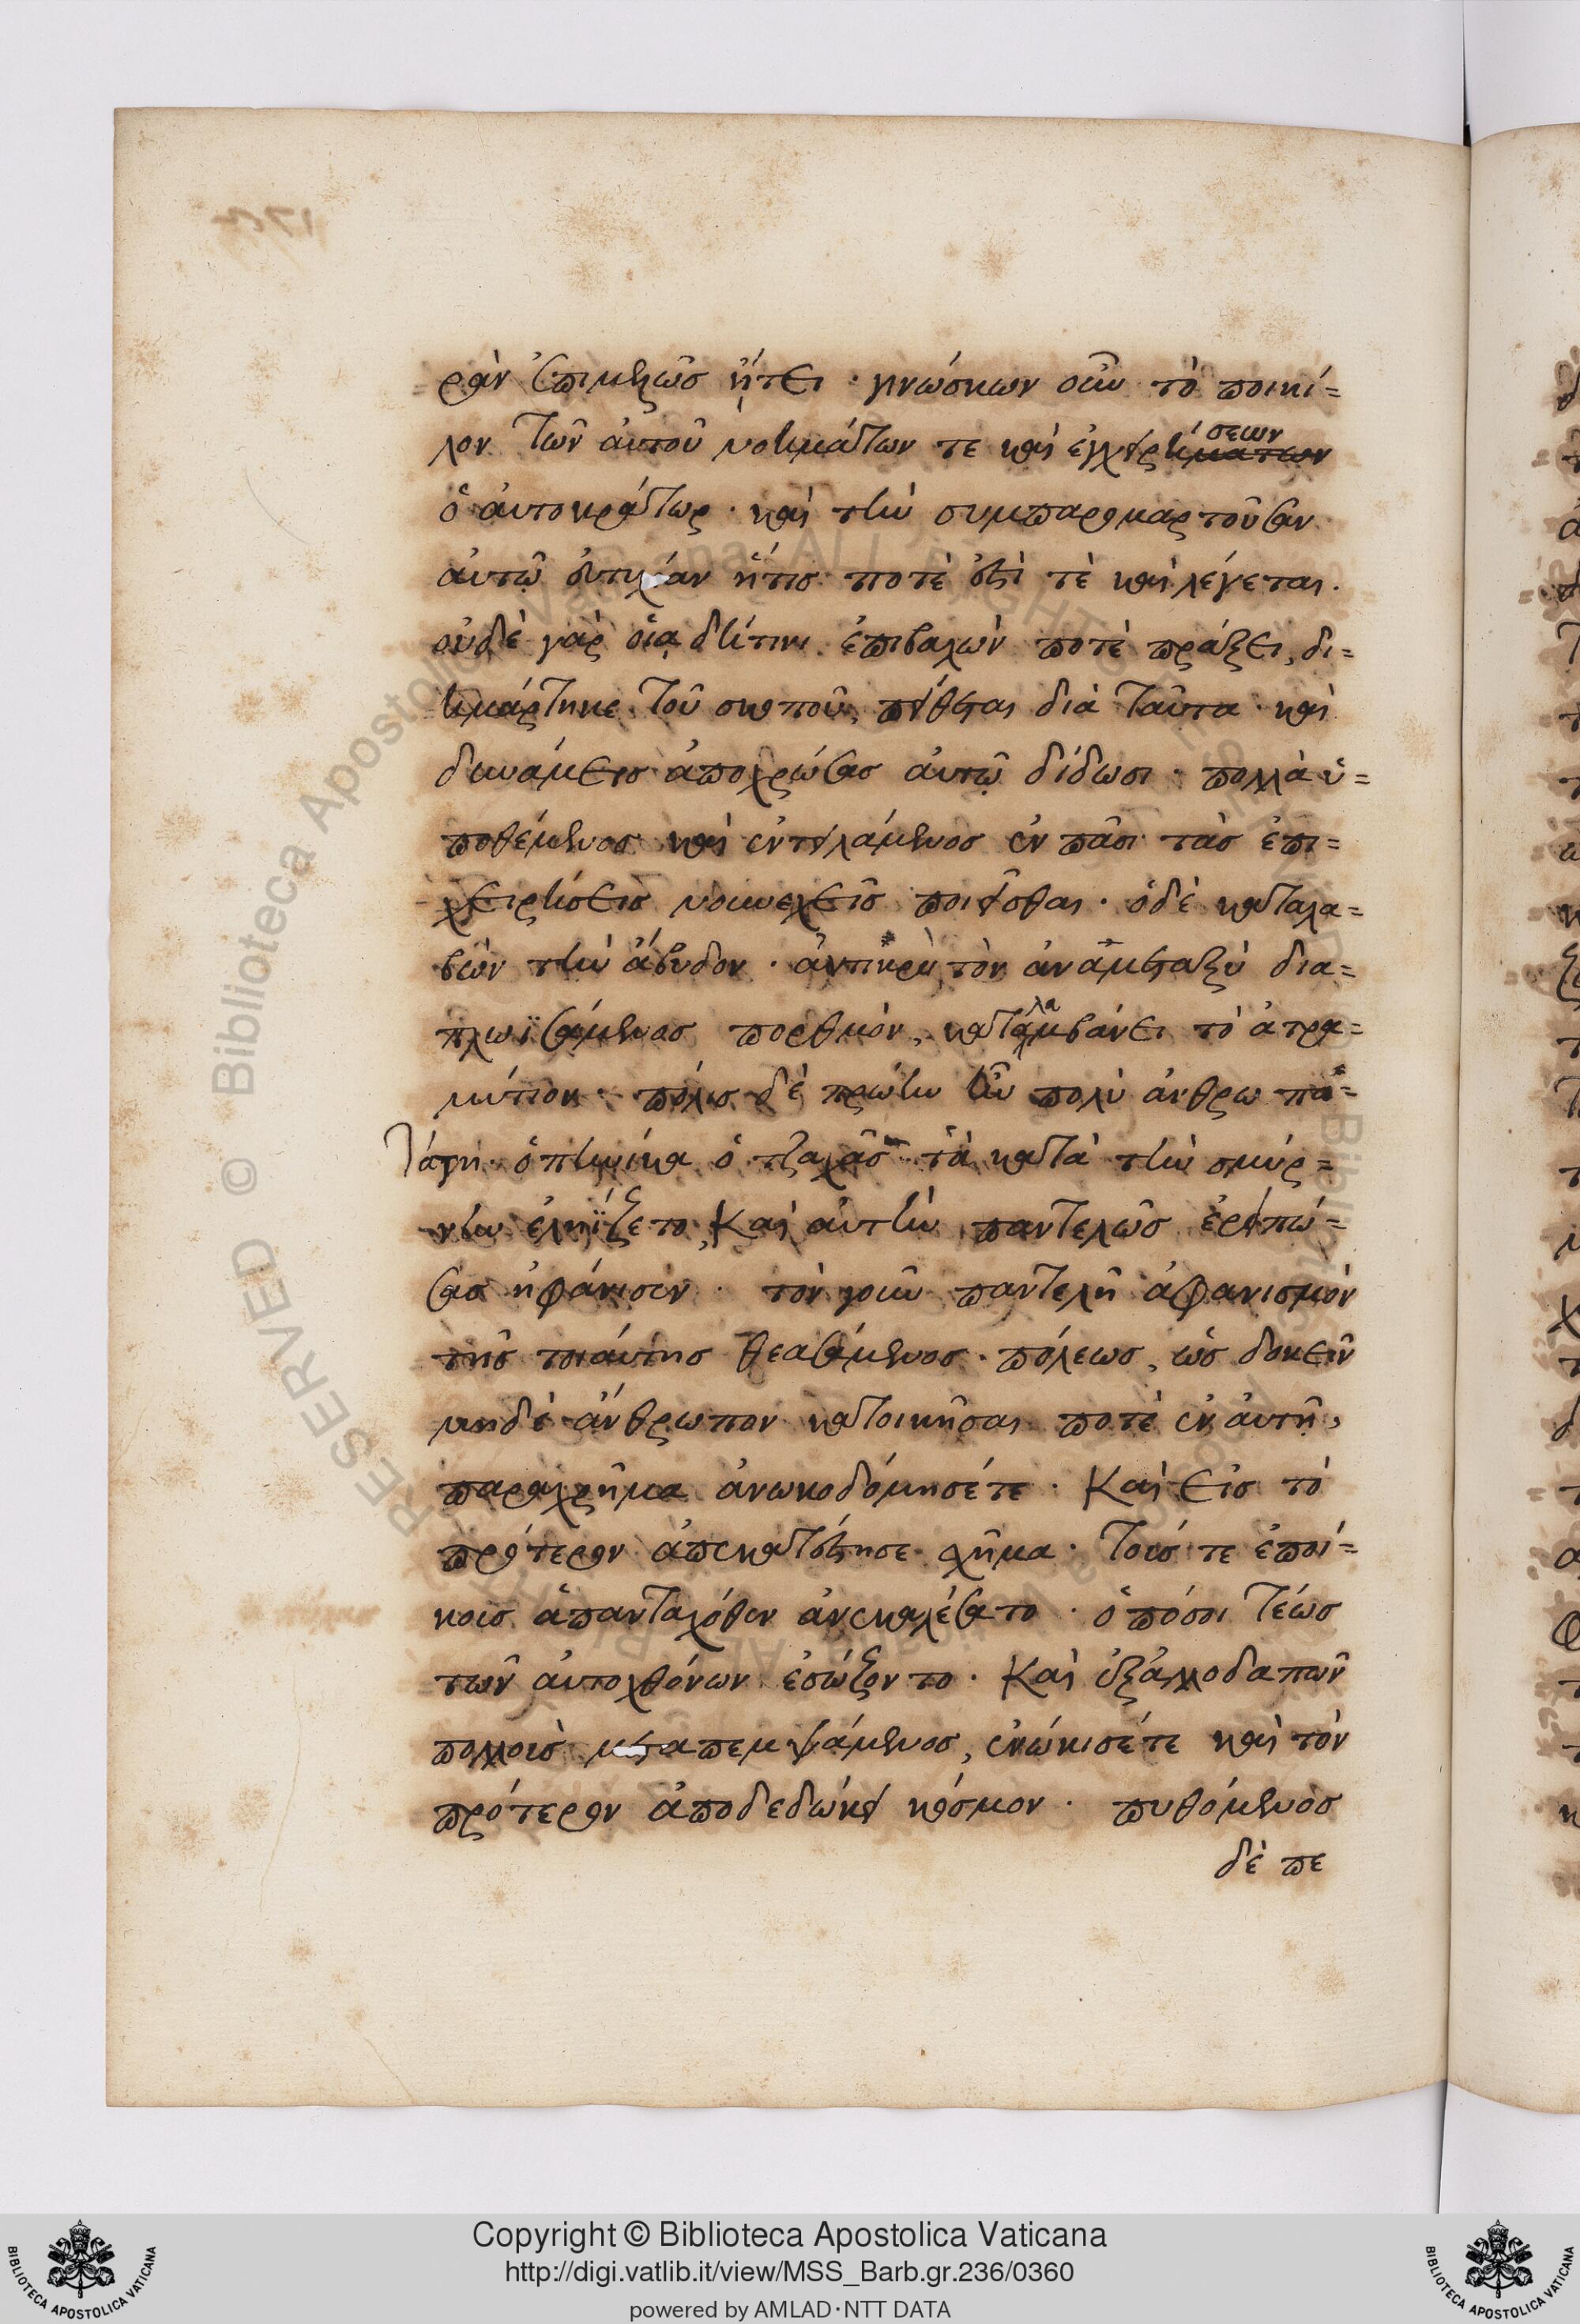 ρὰν ἐπιμελῶς ᾔτει · γινώσκων οὖν τὸ ποικί=
λον τῶν αὐτοῦ νοημάτων τε καὶ ἐγχειρημάτων σεων
ὁ αὐτοκράτωρ · καὶ τὴν συμπαρομαρτοῦσαν
αὐτῷ εὐτυχίαν ἥτις ποτὲ ἐστὶ τὲ καὶ λέγεται.
οὐδὲ γὰρ οἵᾳ δήτινι ἐπιβαλὼν ποτὲ πράξει, δι=
ημάρτηκε τοῦ σκοποῦ, πείθεται διὰ ταῦτα καὶ
δυνάμεις ἀποχρώσας αὐτῷ δίδωσι · πολλὰ ὑ=
ποθέμενος καὶ ἐντειλάμενος ἐν πᾶσι τὰς ἐπι=
χειρήσεις νουνεχεῖς ποιεῖσθαι · ὁ δὲ καταλα=
βὼν τὴν ἄβυδον · ἀντικρὺ τὸν ἀναμεταξὺ δια=
πλωϊσάμενος πορθμόν, καταλαμβάνει τὸ ἀτρα=
μύτιον · πόλις δὲ πρώην ἦν πολὺ ἀνθρωπο=
τάτη · ὁπηνίκα ὁ τζαχᾶς τὰ κατὰ τὴν σμύρ=
νην ἐληΐζετο, καὶ αὐτὴν παντελῶς ἐρειπώ=
σας ἠφάνισεν · τὸν γοῦν παντελῆ ἀφανισμὸν
τῆς τοιαύτης θεασάμενος πόλεως, ὡς δοκεῖν
μηδὲ ἄνθρωπον κατοικῆσαι ποτὲ ἐν αὐτῇ,
παραχρῆμα ἀνωκοδόμησέ τε · Καὶ εἰς τὸ
πρότερον ἀπεκατέστησε σχῆμα · τούς τε ἐποί=
κους ἁπανταχόθεν ἀνεκαλέσατο · ὁπόσοι τέως
τῶν αὐτοχθόνων ἐσώζοντο · Καὶ ἐξ ἀλλοδαπῶν
πολλοὺς μεταπεμψάμενος, ἐνώκισέ τε καὶ τὸν
πρότερον ἀποδεδώκει κόσμον · πυθόμενος
δὲ πε
Copyright © Biblioteca Apostolica Vaticana
http://digi.vatlib.it/view/MSS_Barb.gr.236/0360
powered by AMLAD·NTT DATA